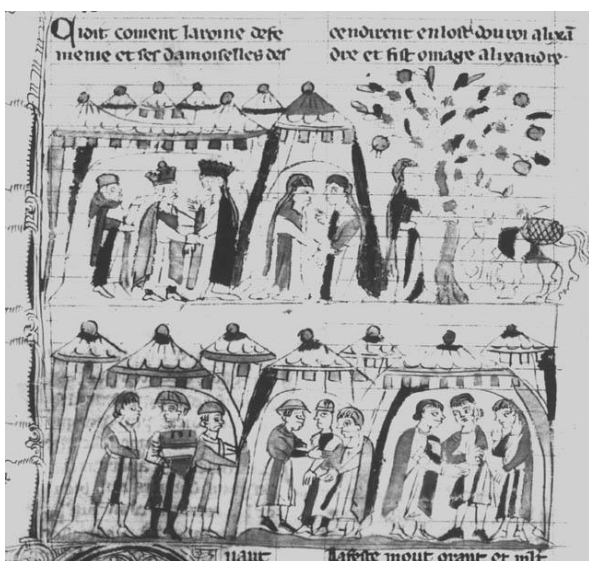 Ci dit coment la roine de fe
menie et ses damoiselles des
cendirent en lost dou roi alixā
dre et fist omage alixandre
uant
la feste mout grant et mlt